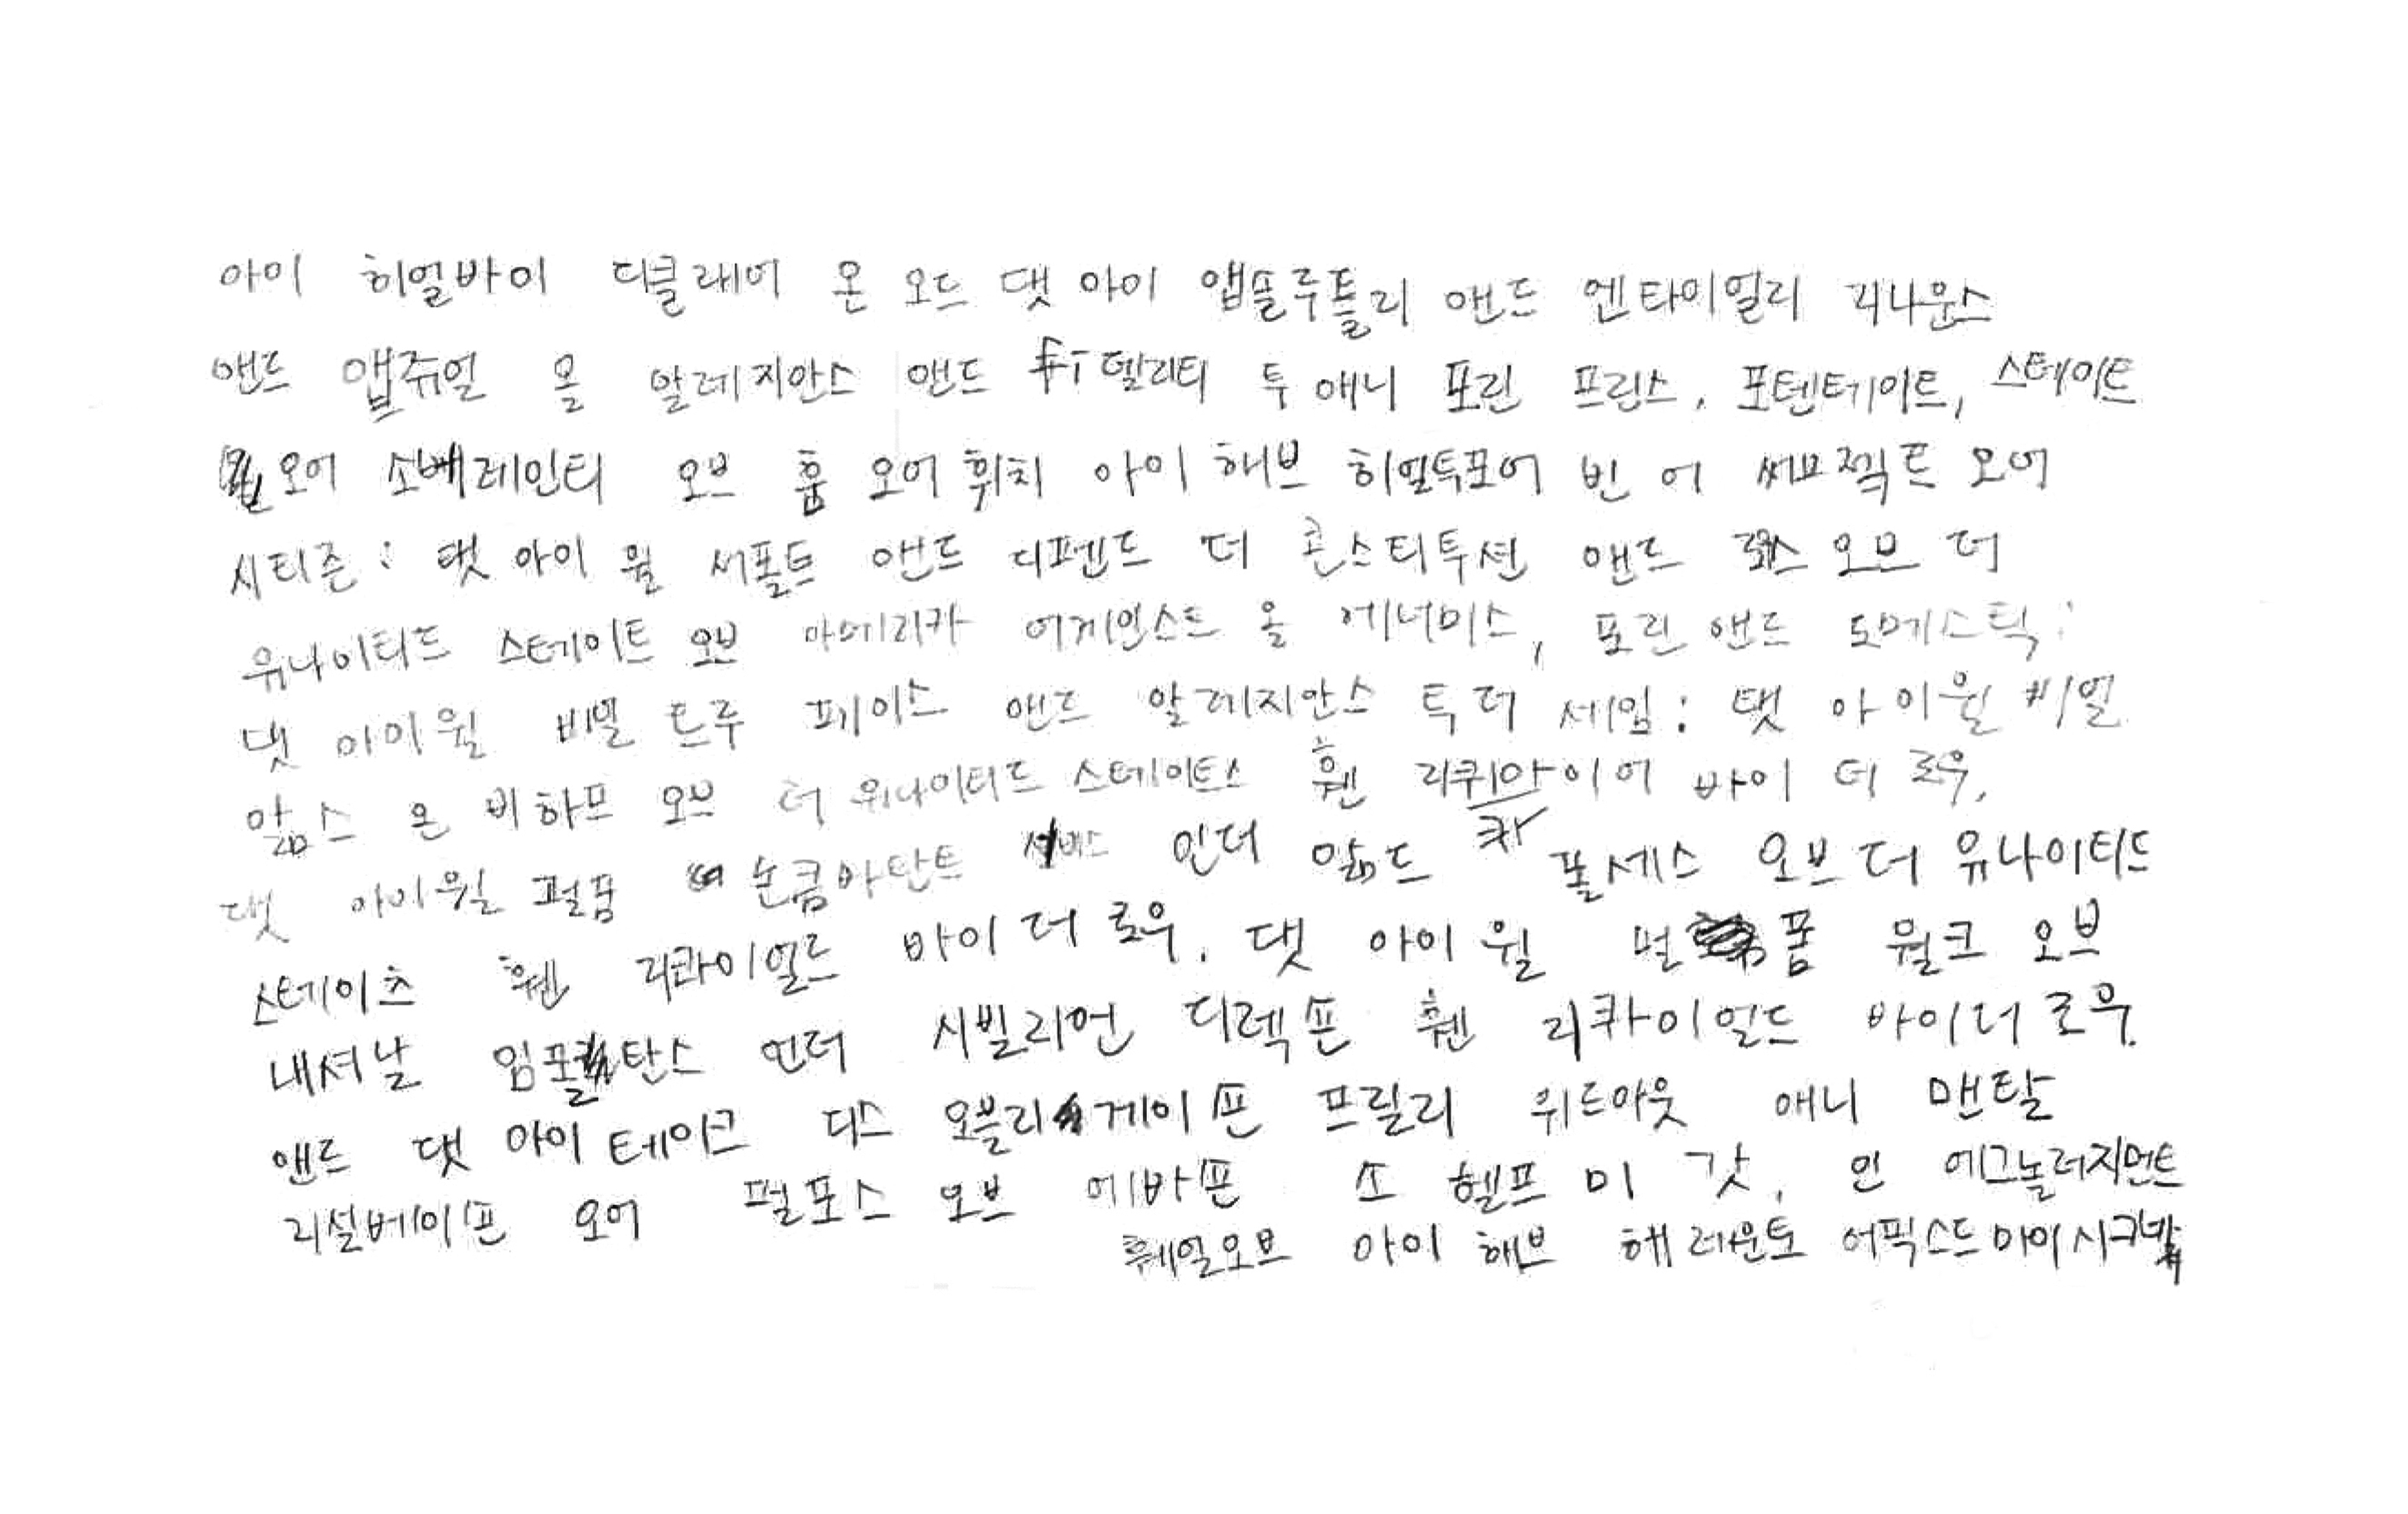 아이 히얼바이 디클래어 온 오드 댓 아이 앱솔루틀리 앤드 엔타이얼리 리나운스
앤드 앱쥬얼 올 알레지안스 앤드 fi델리티 투 애니 포린 프린스, 포텐테이트, 스테이트
오어 소베레인티 오브 훔 오어 휘치 아이 해브 히얼투포어 빈 어 써브젝트 오어
시티즌: 댓 아이 윌 서폴트 앤드 디펜드 더 콘스티투션 앤드 오브 더
유나이티드 스테이트 오브 아메리카 어게인스트 올 에너미스, 포린 앤드 도메스틱:
댓 아이 윌 비얼 트루 페이스 앤드 알레지안스 투 더 세임: 댓 아이 윌 비얼
앎스 온 비하프 오브 더 유나이티드 스테이트스 휀 리퀴아이어 바이 더 로우,
댓 아이 윌 펄폼 논콤바탄트 서비스 인더 앎드 콰 폴세스 오브 더 유나이티드
스테이츠 휀 리콰이얼드 바이 더 로우. 댓 아이 윌 펄폼 월크 오브
내셔날 임포탄스 언더 시빌리언 디렉션 휀 리콰이얼드 바이더 로우.
앤드 댓 아이 테이크 디스 오블리게이션 프릴리 위드아웃 애니 맨탈
리설베이션 오어 펄포스 오브 에바션 소 헬프 미 갓, 인 에그놀러지먼트
훼얼오브 아이 해브 해레운토 어픽스드 마이 시그날